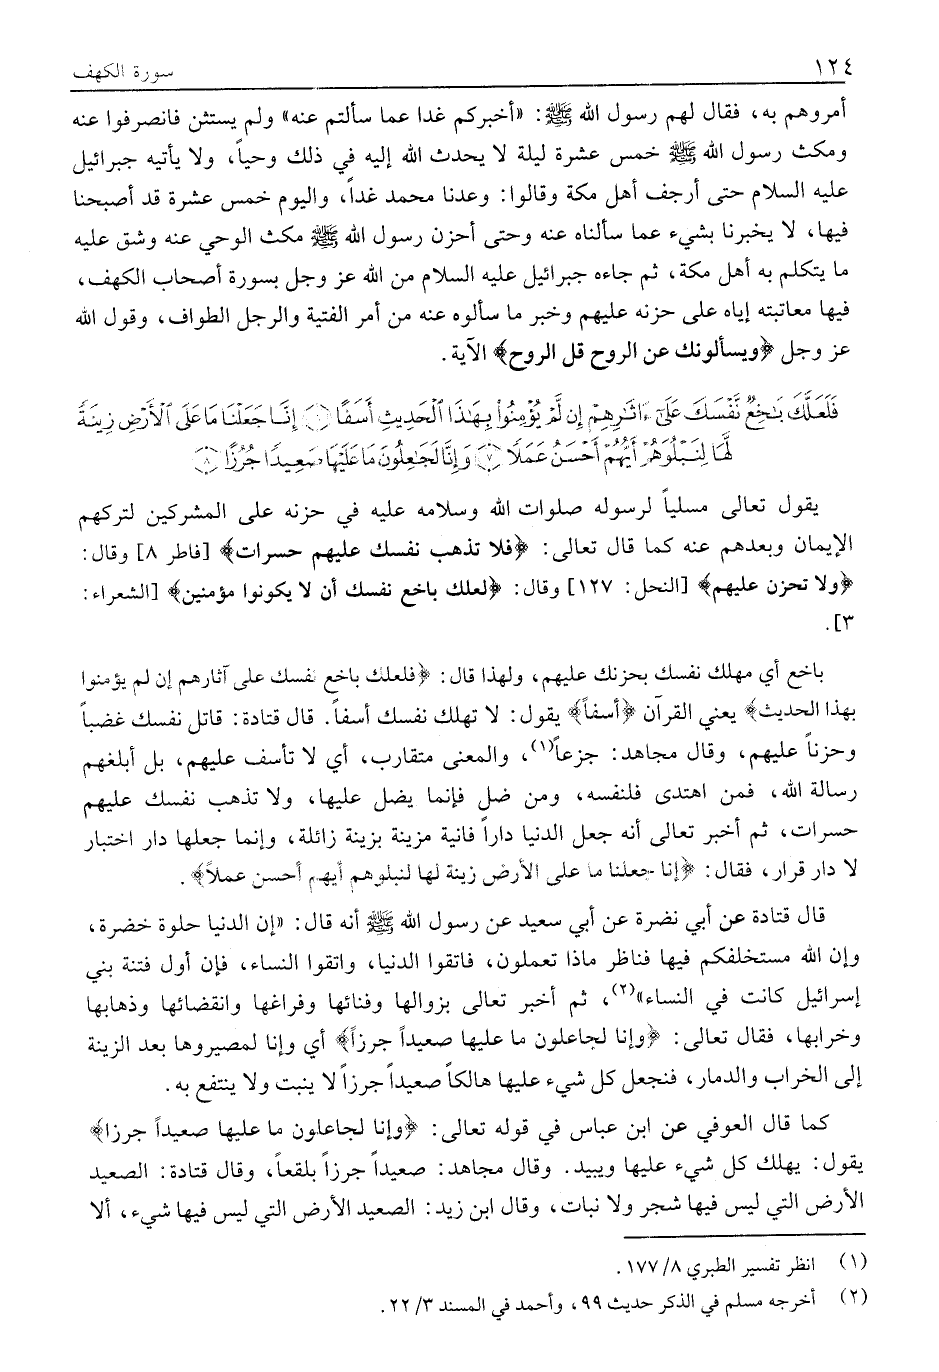 ١٢٤ سورة الكهف
أمروهم به، فقال لهم رسول الله ﷺ: «أخبركم غدا عما سألتم عنه» ولم يستثن فانصرفوا عنه
ومكث رسول الله ﷺ خمس عشرة ليلة لا يحدث الله إليه في ذلك وحياً، ولا يأتيه جبرائيل
عليه السلام حتى أرجف أهل مكة وقالوا: وعدنا محمد غداً، واليوم خمس عشرة قد أصبحنا
فيها، لا يخبرنا بشيء عما سألناه عنه وحتى أحزن رسول الله ﷺ مكث الوحي عنه وشق عليه
ما يتكلم به أهل مكة، ثم جاءه جبرائيل عليه السلام من الله عز وجل بسورة أصحاب الكهف،
فيها معاتبته إياه على حزنه عليهم وخبر ما سألوه عنه من أمر الفتية والرجل الطواف، وقول الله
عز وجل ﴿ويسألونك عن الروح قل الروح﴾ الآية.
فَلَعَلَّكَ بَٰخِعٌ نَّفْسَكَ عَلَىٰٓ ءَاثَٰرِهِمْ إِن لَّمْ يُؤْمِنُوا۟ بِهَٰذَا ٱلْحَدِيثِ أَسَفًا ۝٦ إِنَّا جَعَلْنَا مَا عَلَى ٱلْأَرْضِ زِينَةً
لَّهَا لِنَبْلُوَهُمْ أَيُّهُمْ أَحْسَنُ عَمَلًا ۝٧ وَإِنَّا لَجَٰعِلُونَ مَا عَلَيْهَا صَعِيدًا جُرُزًا ۝٨
يقول تعالى مسلياً لرسوله صلوات الله وسلامه عليه في حزنه على المشركين لتركهم
الإيمان وبعدهم عنه كما قال تعالى: ﴿فلا تذهب نفسك عليهم حسرات﴾ [فاطر ٨] وقال:
﴿ولا تحزن عليهم﴾ [النحل: ١٢٧] وقال: ﴿لعلك باخع نفسك أن لا يكونوا مؤمنين﴾ [الشعراء:
٣].
باخع أي مهلك نفسك بحزنك عليهم، ولهذا قال: ﴿فلعلك باخع نفسك على آثارهم إن لم يؤمنوا
بهذا الحديث﴾ يعني القرآن ﴿أسفاً﴾ يقول: لا تهلك نفسك أسفاً. قال قتادة: قاتل نفسك غضباً
وحزناً عليهم، وقال مجاهد: جزعاً(١)، والمعنى متقارب، أي لا تأسف عليهم، بل أبلغهم
رسالة الله، فمن اهتدى فلنفسه، ومن ضل فإنما يضل عليها، ولا تذهب نفسك عليهم
حسرات، ثم أخبر تعالى أنه جعل الدنيا داراً فانية مزينة بزينة زائلة، وإنما جعلها دار اختبار
لا دار قرار، فقال: ﴿إنا جعلنا ما على الأرض زينة لها لنبلوهم أيهم أحسن عملاً﴾.
قال قتادة عن أبي نضرة عن أبي سعيد عن رسول الله ﷺ أنه قال: «إن الدنيا حلوة خضرة،
وإن الله مستخلفكم فيها فناظر ماذا تعملون، فاتقوا الدنيا، واتقوا النساء، فإن أول فتنة بني
إسرائيل كانت في النساء»(٢)، ثم أخبر تعالى بزوالها وفنائها وفراغها وانقضائها وذهابها
وخرابها، فقال تعالى: ﴿وإنا لجاعلون ما عليها صعيداً جرزاً﴾ أي وإنا لمصيروها بعد الزينة
إلى الخراب والدمار، فنجعل كل شيء عليها هالكاً صعيداً جرزاً لا ينبت ولا ينتفع به.
كما قال العوفي عن ابن عباس في قوله تعالى: ﴿وإنا لجاعلون ما عليها صعيداً جرزا﴾
يقول: يهلك كل شيء عليها ويبيد. وقال مجاهد: صعيداً جرزاً بلقعاً، وقال قتادة: الصعيد
الأرض التي ليس فيها شجر ولا نبات، وقال ابن زيد: الصعيد الأرض التي ليس فيها شيء، ألا
(١) انظر تفسير الطبري ٨/ ١٧٧.
(٢) أخرجه مسلم في الذكر حديث ٩٩، وأحمد في المسند ٣/ ٢٢.